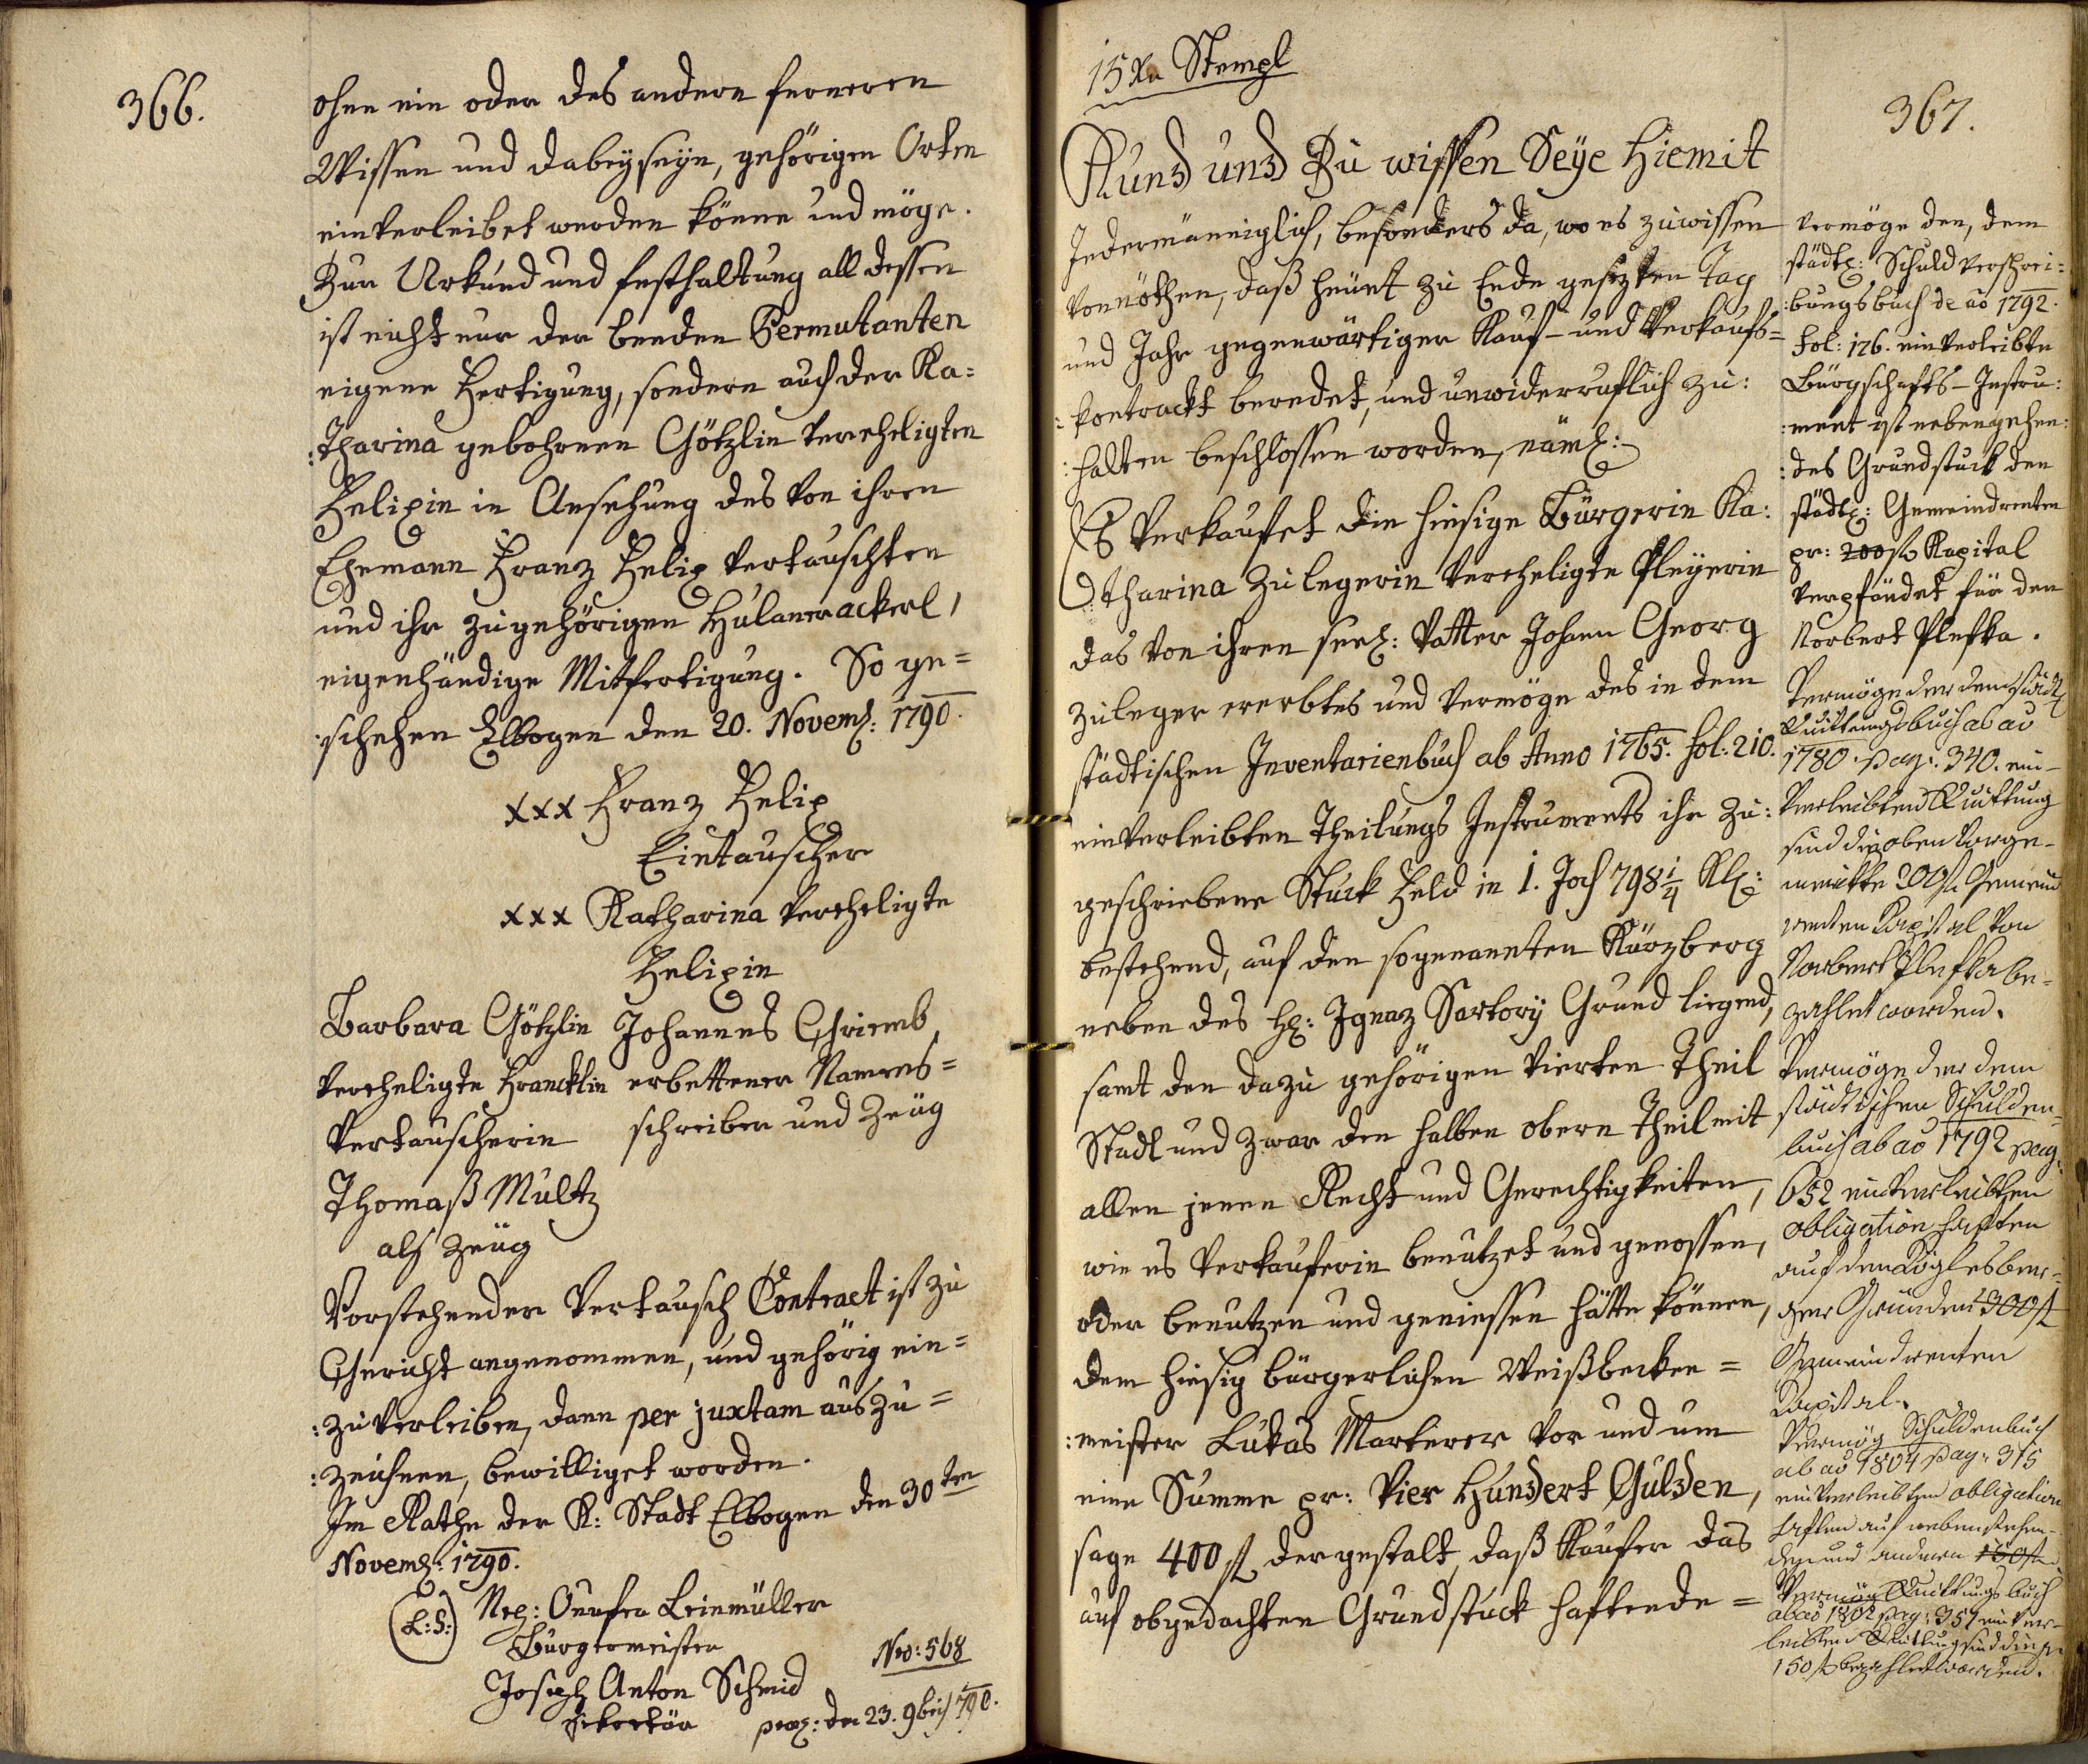 366.
ohne ein oder des andern ferneren
Wissen und dabeyseyn, gehörigen Orten
einverleibet werden könne und möge.
Zur Urkund und festhaltung all dessen
ist nicht nur der beeden Permutanten
eigene Fertigung, sondern auch der Ka=
:tharina gebohrnen Götzlin verehligten
Felixin in Ansehung des von ihren
Ehemann Franz Felix vertauschten
und ihr zugehörigen Hulanerackerl,
eigenhändige Mitfertigung. So ge=
:schehen Elbogen den 20. Novemb: 1790.
xxx Franz Felix
Eintauscher
xxx Katharina verehligte
Felixin
Barbara Götzlin
verehligte Francklin
Vertauscherin
Johannes Griemb,
erbettener Namens=
schreiber und Zeüg
Thomaß Multz
als Zeüg
Vorstehender Vertausch Contract ist zu
Gericht angenommen, und gehörig ein=
:zuverleiben, dann per juxtam auszu=
:zeichnen, bewilliget worden.
Im Rathe der K: Stadt Elbogen den 30ten
Novemb: 1790.
(L:S:) Nep: Onufer Leinmüller
Burgermeister
Joseph Anton Schmid
Sekretär
Nro: 568
præs: den 23. 9bris 790.
15 Xr Stempl
367.
Kund und Zu wissen Seye Hiemit
Jedermänniglich, besonders da, wo es zuwissen
vonnöthen, daß heünt zu Ende gesezten Tag
und Jahr gegenwärtiger Kauf- und Verkaufs=
:kontrackt beredet, und unwiderruflich zu:
:halten beschlossen worden, näml:
Es verkaufet die hiesige Bürgerin Ka:
:tharina Zulegerin verehligte Pleyerin
das von ihren seel: Vatter Johann Georg
Zuleger ererbtes und vermöge des in dem
städtischen Inventarienbuch ab Anno 1765. fol: 210.
einverleibten Theilungs Instruments ihr zu:
geschriebene Stuck Feld in 1. Joch 798 1/4 Kl:
bestehend, auf den sogenannten Kürzberg
neben des H: Ignaz Sartory Grund liegend,
samt den dazu gehörigen vierten Theil
Stadl und zwar den halben obern Theil mit
allen jenen Recht und Gerechtigkeiten,
wie es Verkauferin benutzet und genossen,
oder benutzen und geniessen hätte können,
dem hiesig bürgerlichen Weißbecken=
:meister Lukas Marterer vor und um
eine Summe pr: Vier Hundert Gulden,
sage 400 fl dergestalt, daß Kaufer das
auf obgedachten Grundstuck haftende=
vermöge den, dem
städtl: Schuld verschrei:
:bungsbuch de ao 1792.
fol: 176. einverleibte
Bürgschafts-Instru:
:ment ist nebengehen:
:des Grundstuck den
städtl: Gemeindrenten
pr: 200 fl Kapital
verpfändet für den
Norbert Plefka.
Vermöge der dem städtl
Quittungsbuch ab ao
1780. pag: 340. ein-
verleibten Quittung
sind die oben vorge-
merkte 200 fl Gemeind
renten Kapital von
Norbert Plefka be-
zahlet worden.
Vermöge der dem
städtischen Schulden-
buch ab ao 1792 pag:
652 einverleibten
obligation haften
auf
Gründen 300 fl
Gemeindrenten
Kapital.
Vermög Schuldenbuch
ab ao 1804 pag: 315
einverleibten obligation
haften auf nebenstehen-
den und andern 150 fl
Vermög Quittungsbuch
ab ao 1802 pag: 357 einver-
leibten Quittung sind die pr
150 fl bezahlet worden.